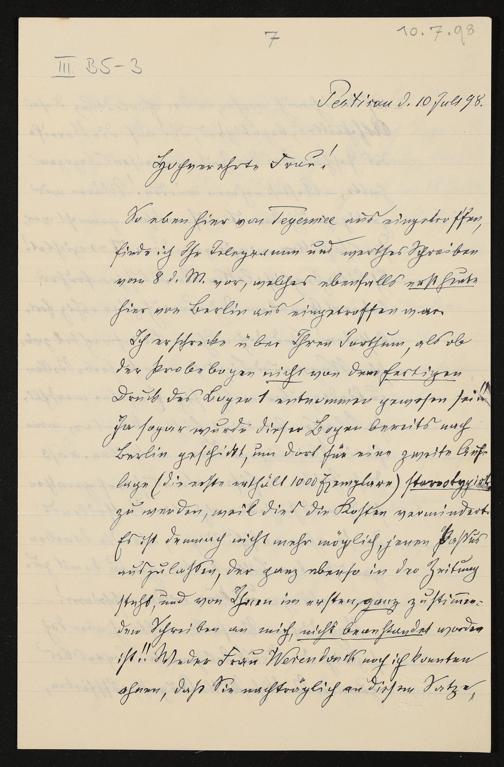 10.7.98
7
III B5-3
d. 10 Juli 98.
Hochverehrte Frau!
So eben hier von Tegernsee aus eingetroffen,
finde ich Ihr Telegramm und werthes Schreiben
vom 8 d. M. vor, welches ebenfalls erst heute
hier von Berlin aus eingetroffen war.
Ich erschrecke über Ihren Irrthum, als ob
der Probebogen nicht von dem fertigen
Druck des Bogen 1 entnommen gewesen sei!!
Ja sogar wurde dieser Bogen bereits nach
Berlin geschickt, um dort für eine zweite Auf-
lage (die erste enthält 1000 Exemplare) stereotypirt
zu werden, weil dies die Kosten vermindert.
Es ist demnach nicht mehr möglich, jenen Passus
auszulassen, der ganz ebenso in der Zeitung
steht, und von Ihnen im ersten, ganz zustimmen-
den Schreiben an mich, nicht beanstandet worden
ist!! Weder Frau Wesendonk noch ich konnten
ahnen, daß Sie nachträglich an diesem Satze,